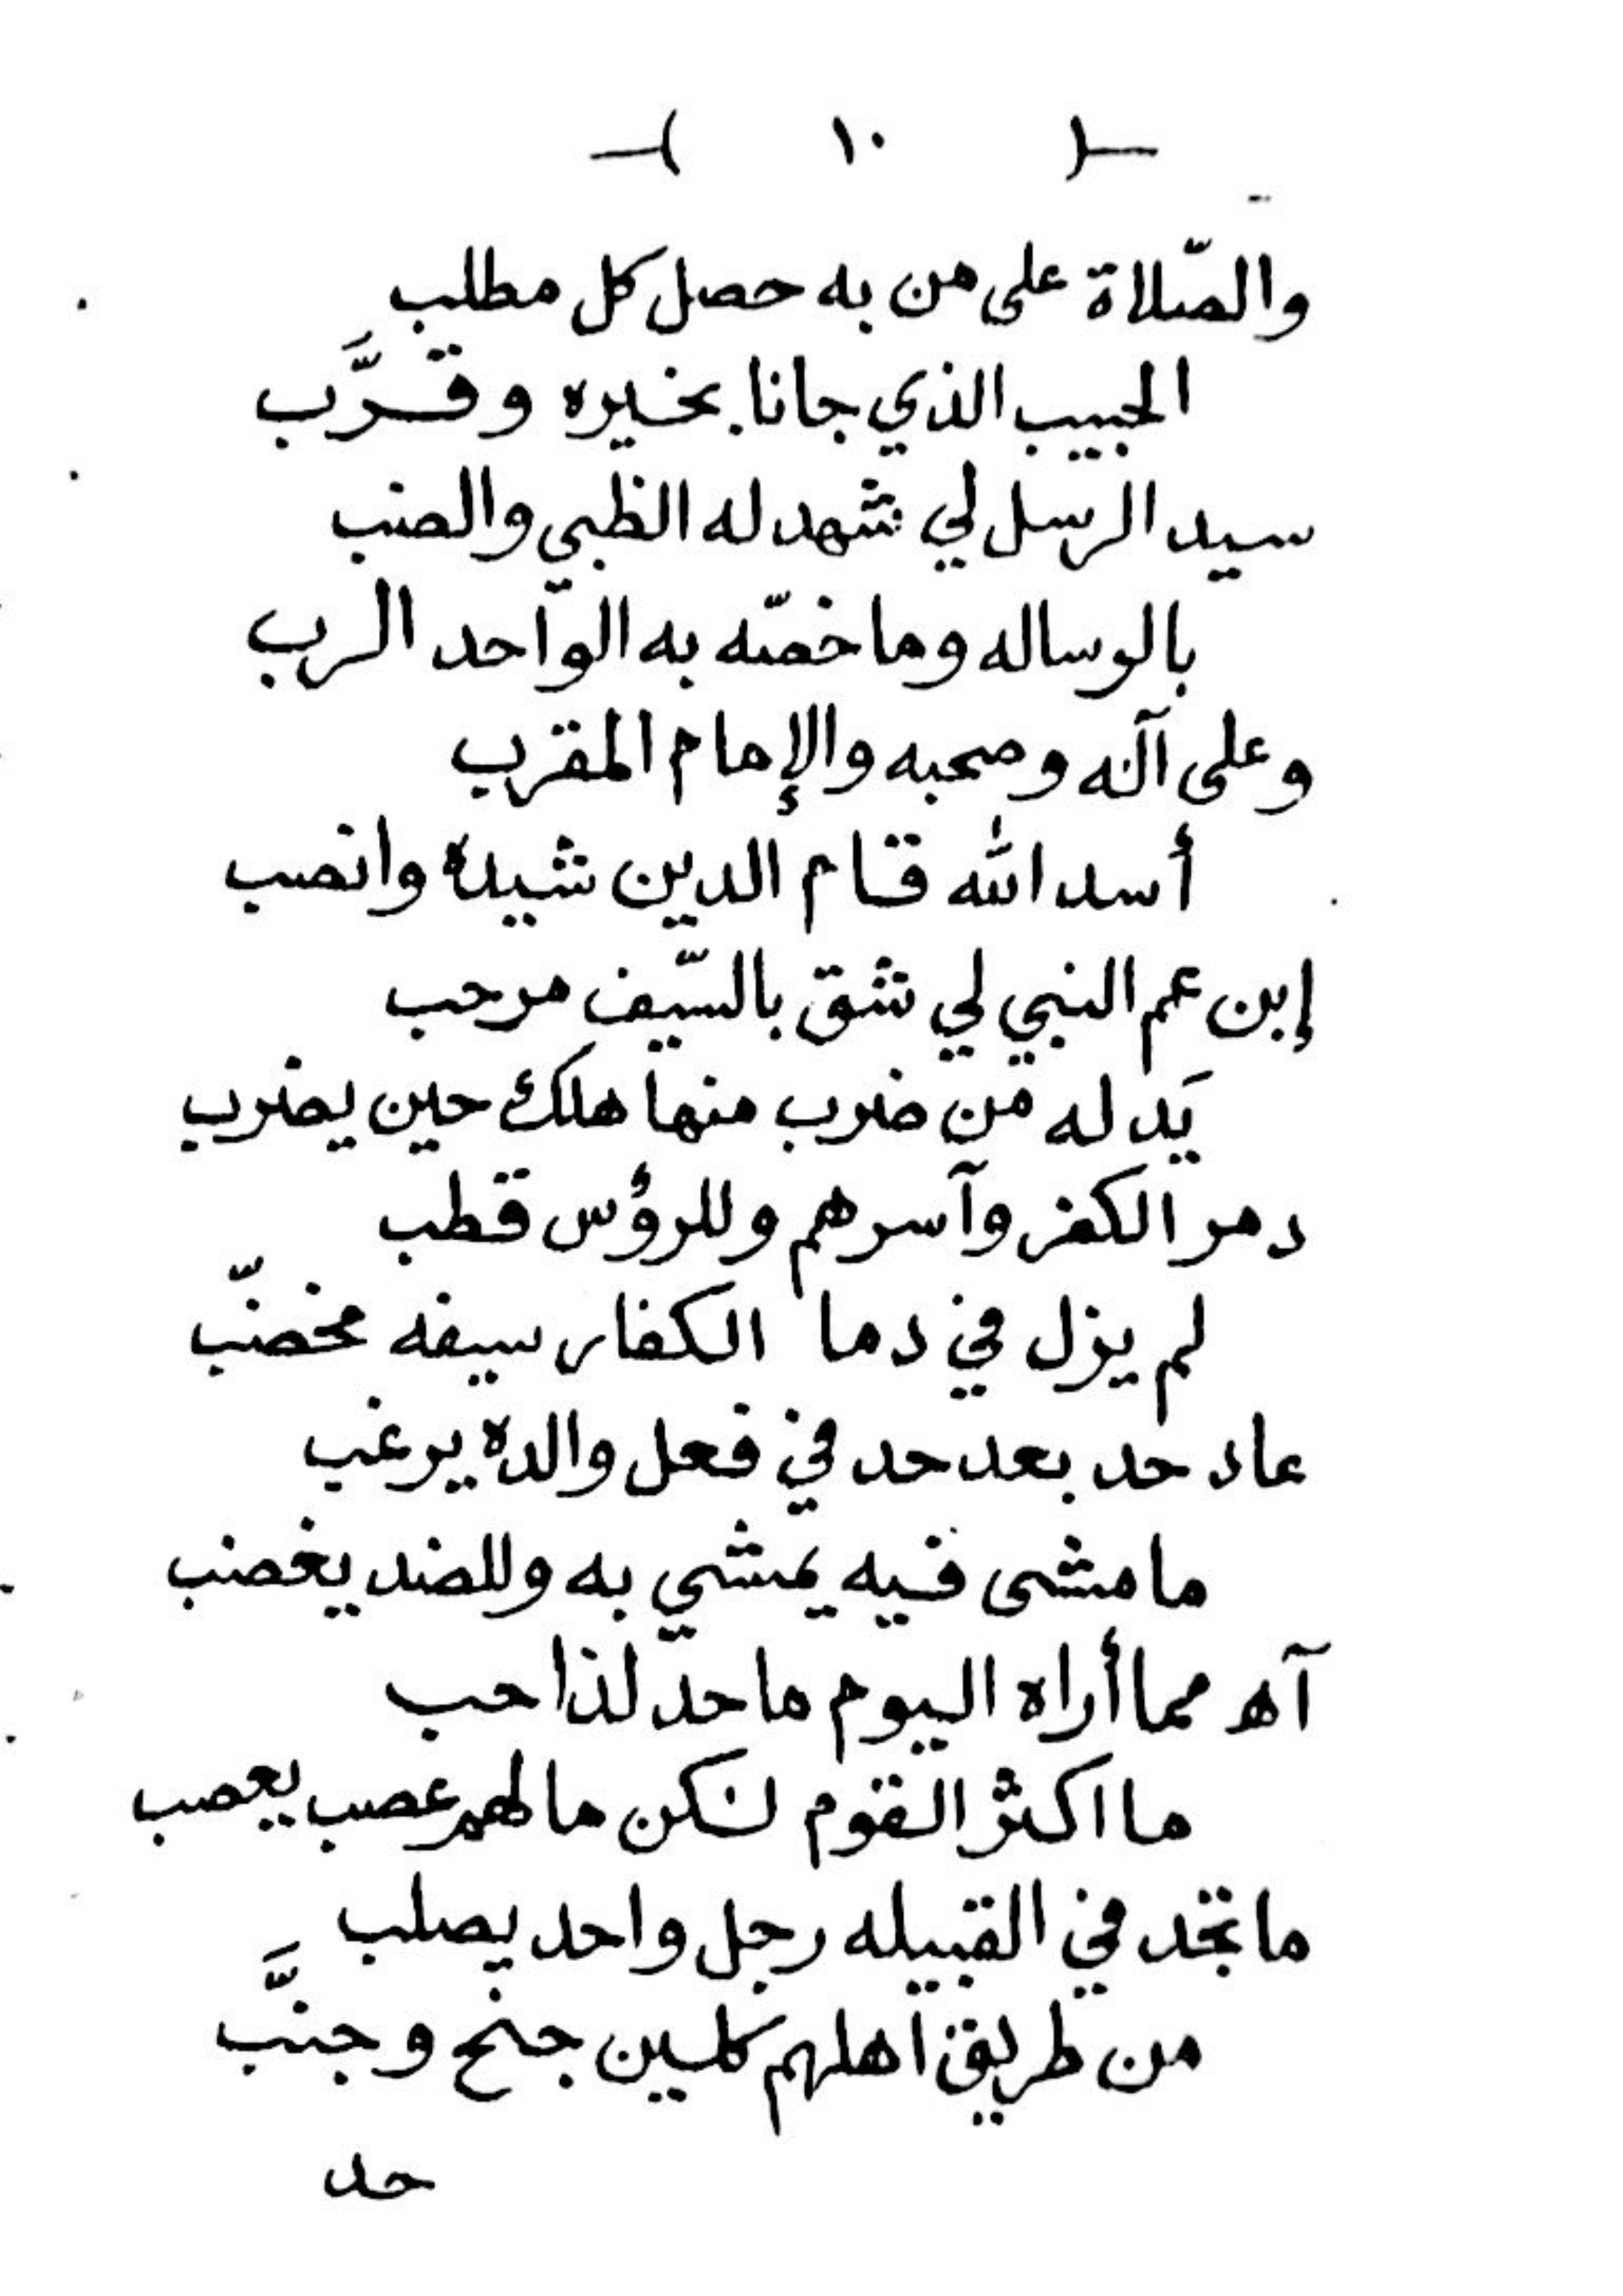 ( ١٠ )
والصّلاة على من به حصل كل مطلب
الحبيب الذي جانا بخيره وقرَّب
سيد الرسل لي شهد له الظبي والضب
بالرساله وما خصّه به الواحد الرب
وعلى آله وصحبه والإمام المقرب
أسد الله قام الدين شيده وانصب
إبن عم النبي لي شق بالسّيف مرحب
يَد له من ضرب منها هلك حين يضرب
دمر الكفر وآسرهم وللرؤس قطب
لم يزل في دما الكفار سيفه مخضّب
عاد حد بعد حد في فعل والده يرغب
ما مشى فيه يمشي به وللضد يغضب
آه مما أراه اليوم ما حدّ لذا حب
ما اكثر القوم لكن ما لهم عصب يعصب
ما تجد في القبيله رجل واحد يصلب
من طريق اهلهم كلين جنح وجنَّب
حد